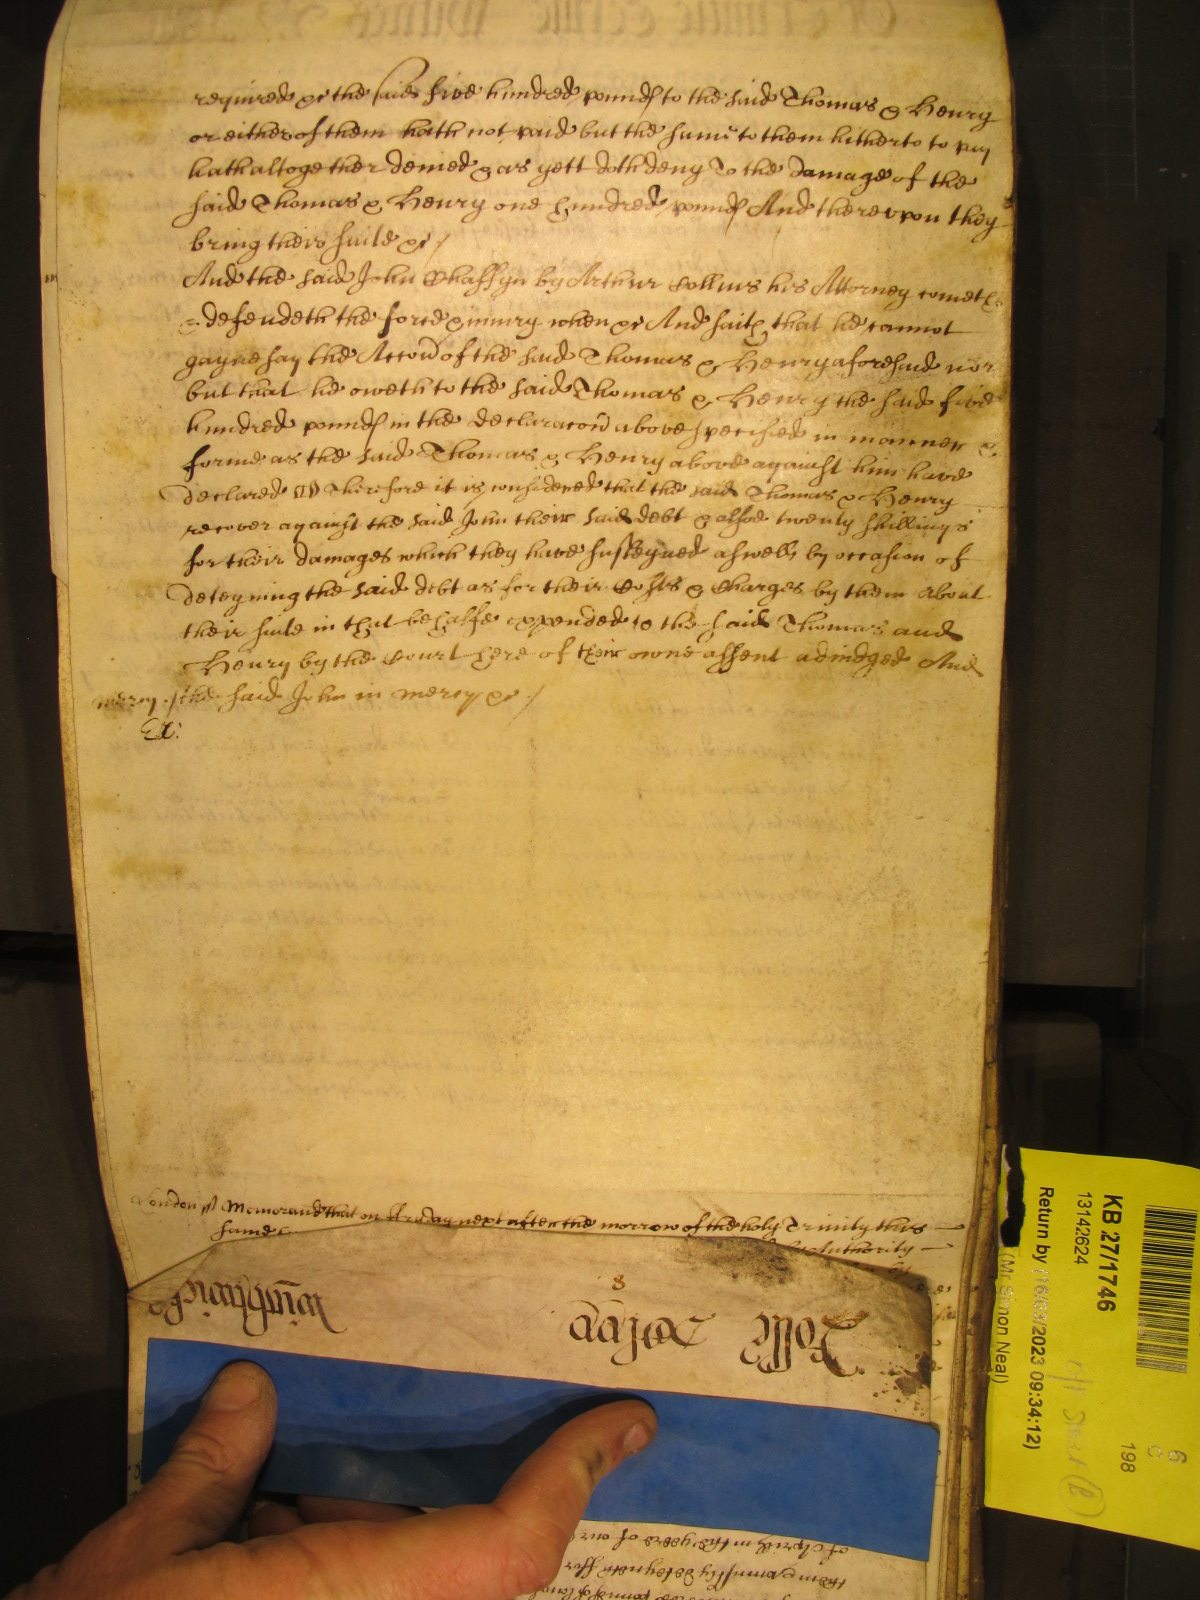 required &c the said five hundred pounds to the said Thomas & Henry
or either of them hath not paid but the same to them hitherto to pay
hath altogether denied & as yett doth deny To the damage of the
said Thomas & Henry one hundred pounds And thereupon they
bring theire suite &c /
And the said John Chaffyn by Arthur Collins his Attorney cometh
& defendeth the force & iniury when &c And saith that he cannot
gaynesay the Accōn of the said Thomas & Henry aforesaid nor
but that he oweth to the said Thomas & Henry the said five
hundred pounds in the declaracōn above specified in manner &
forme as the said Thomas & Henry above against him have
declared Therefore it is considered that the said Thomas & Henry
recover against the said John their said debt & alsoe twenty shillings
for their damages which they have susteyned aswell by occasion of
deteyning the said debt as for their Costs & Charges by them about
their suite in that behalfe expended to the said Thomas and
Henry by the Court here of their owne assent adiudged And
mercy / the said John in mercy &c /
Ex:
London ss Memorand that on Friday next after the morrow of the holy Trinity this
same
by Authority
8
Rolle
KB 27/1746
13142624
Return by (16/03/2023 09:34:12)
(Mr Simon Neal)
198
6
of Aprill in the yeare of our
them & iniustly deteyneth for